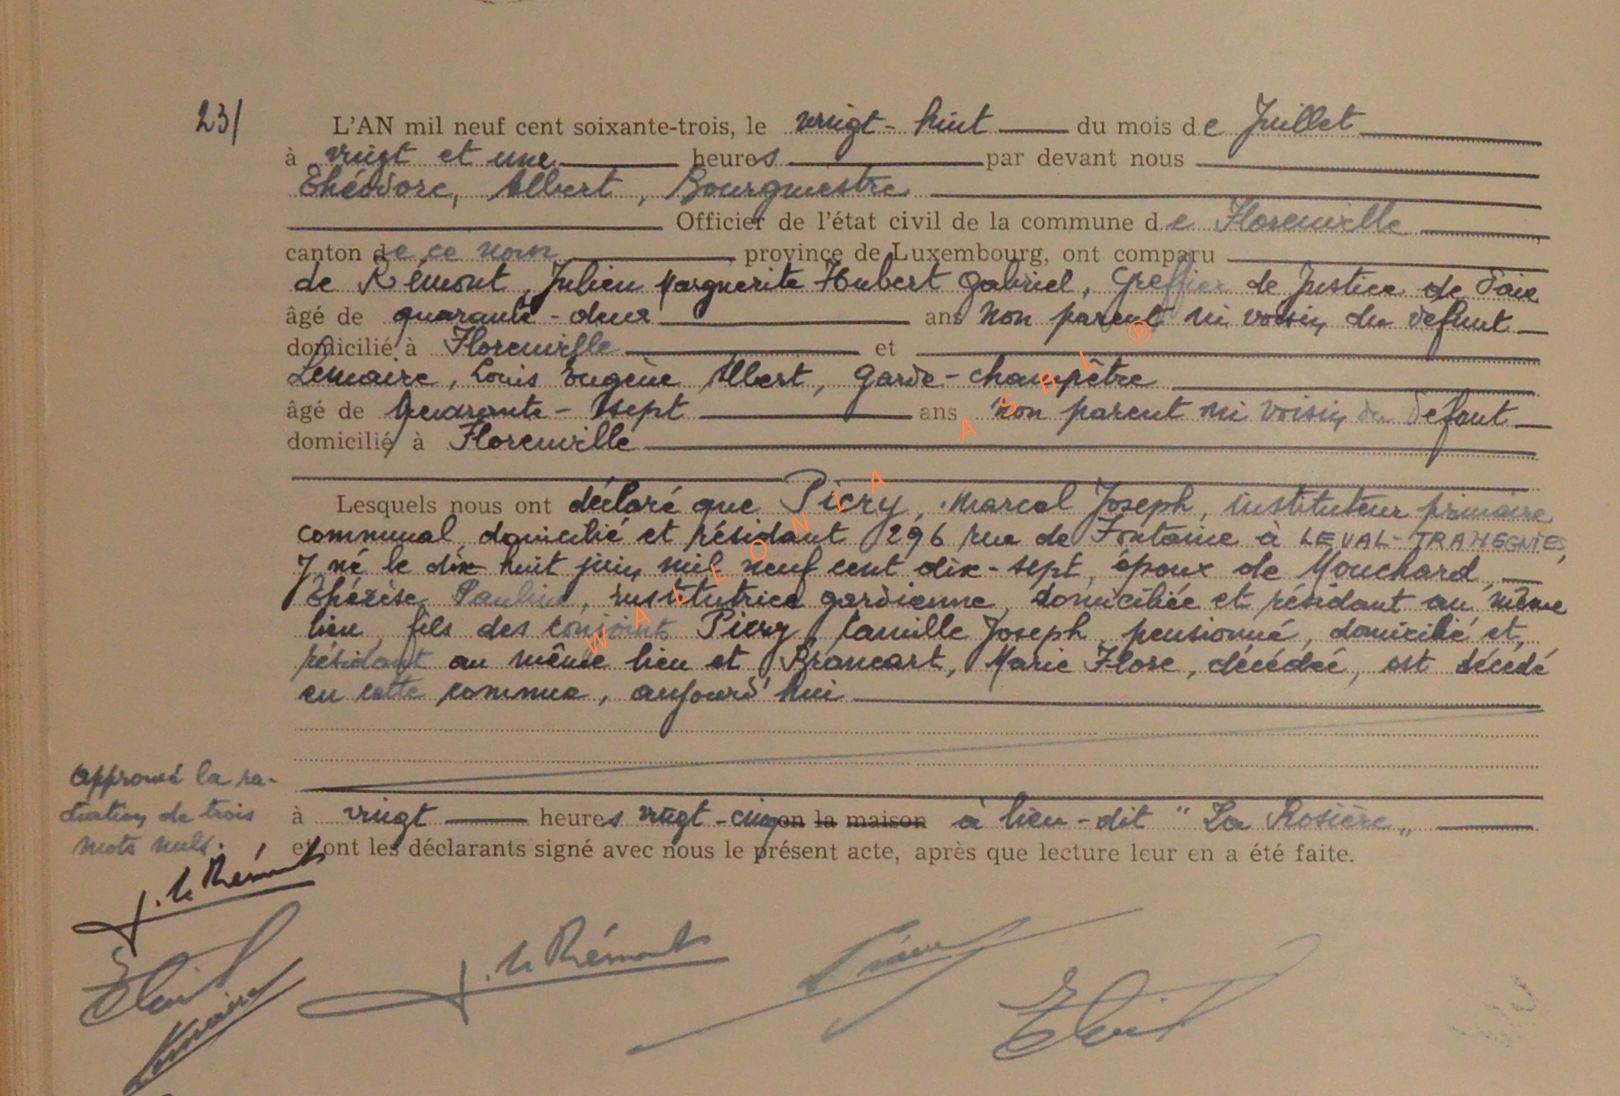 23/
L'AN mil neuf cent soixante-trois, le vingt-huit du mois de Juillet
à vingt et une heures par devant nous
Théodore, Albert, Bourgmestre
Officier de l'état civil de la commune de Florenville
canton de ce nom province de Luxembourg, ont comparu
de Rémont, Julien Marguerite Hubert Gabriel, Greffier de Justice de Paix
âgé de quarante-deux ans non parent ni voisin du défunt
domicilié à Florenville et
Lemaire, Louis Eugène Albert, garde-champêtre
âgé de quarante-sept ans non parent ni voisin du défunt
domicilié à Florenville
Lesquels nous ont déclaré que Piery, Marcel Joseph, instituteur primaire
communal, domicilié et résidant 296 rue de Fontaine à LEVAL-TRAHEGNIES,
y né le dix huit juin mil neuf cent dix-sept, époux de Mouchard,
Thérèse Pauline, institutrice gardienne, domiciliée et résidant au même
lieu, fils des conjoints Piery Camille Joseph, pensionné, domicilié et
résidant au même lieu et Brancart, Marie Flore, décédée, est décédé
en cette commune, aujourd'hui
à vingt heures vingt-cinq en la maison à lieu-dit "La Rosière"
et ont les déclarants signé avec nous le présent acte, après que lecture leur en a été faite.
Approuvé la ra-
diation de trois
mots nuls.
J. de Rémont
Lemaire
J. de Rémont
WALLONIA ASBL ®